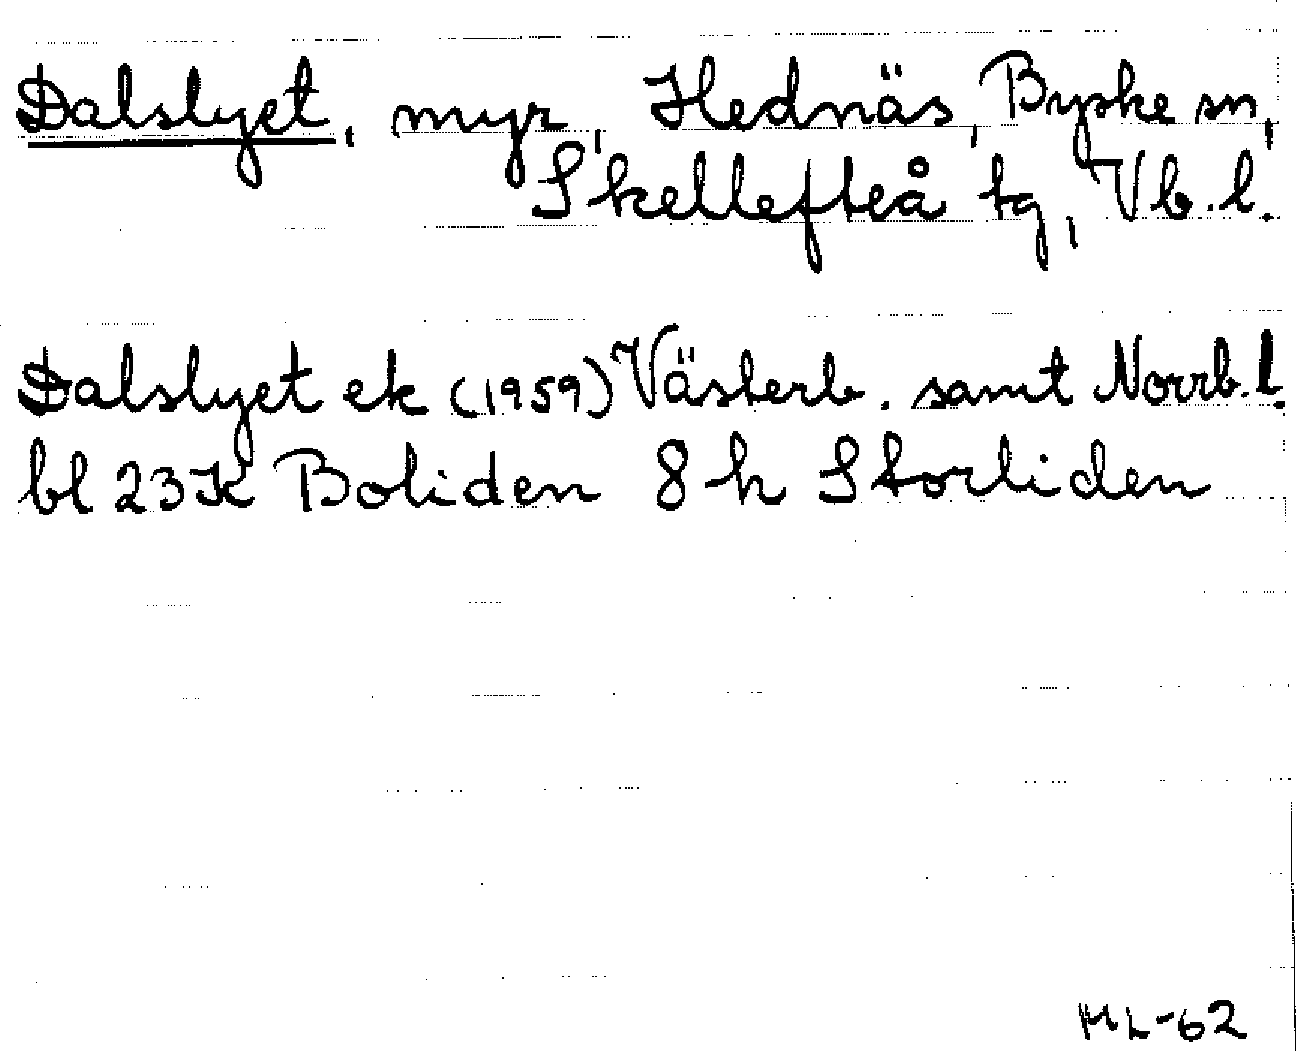 Dalslyet, myr, Hednäs, Byske sn,
Skellefteå tg, Vb.l.
Dalslyet ek (1959) Västerb. samt Norrb.l.
bl 23K Boliden 8 h Storliden
ML-62